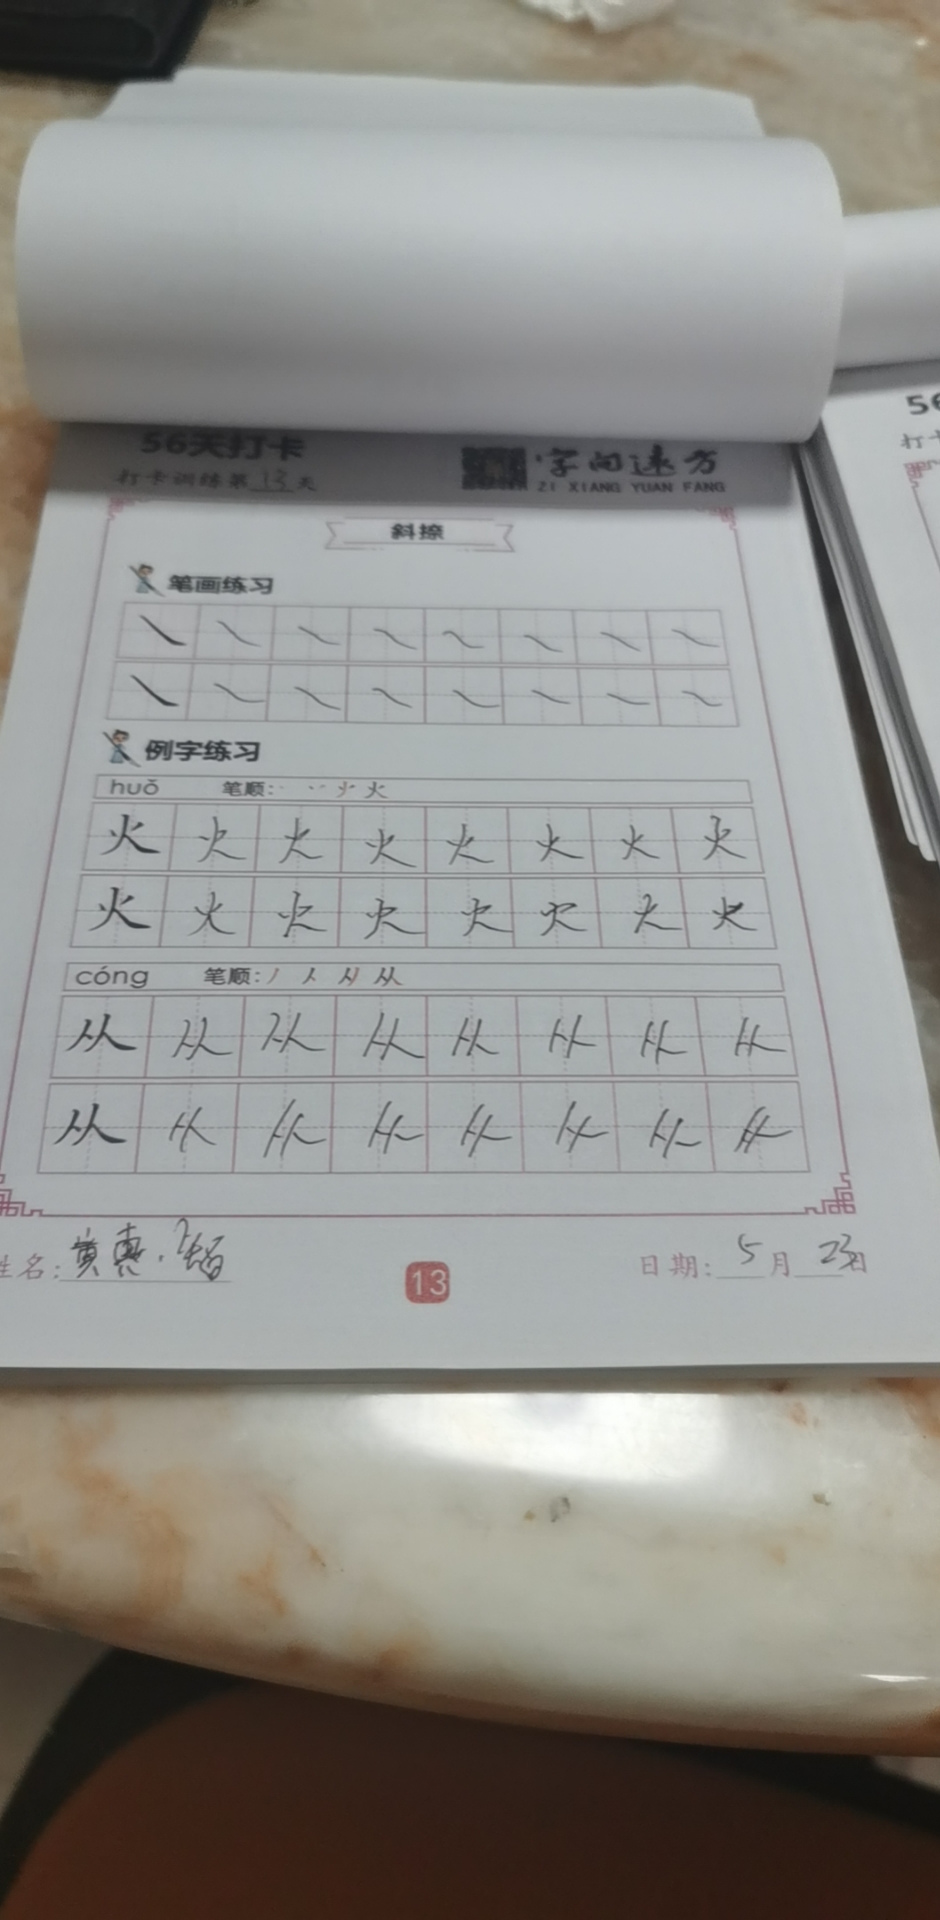 56天打卡
打卡训练第13天
字向速方
ZI XIANG YUAN FANG
斜捺
笔画练习
例字练习
huǒ 笔顺: 丶 丷 少 火
火 火 火 火 火 火 火 火
火 火 火 火 火 火 火 火
cóng 笔顺: 丿 人 从 从
从 从 从 从 从 从 从 从
从 从 从 从 从 从 从 从
姓名: 黄
13
日期: 5月23日
56
打卡